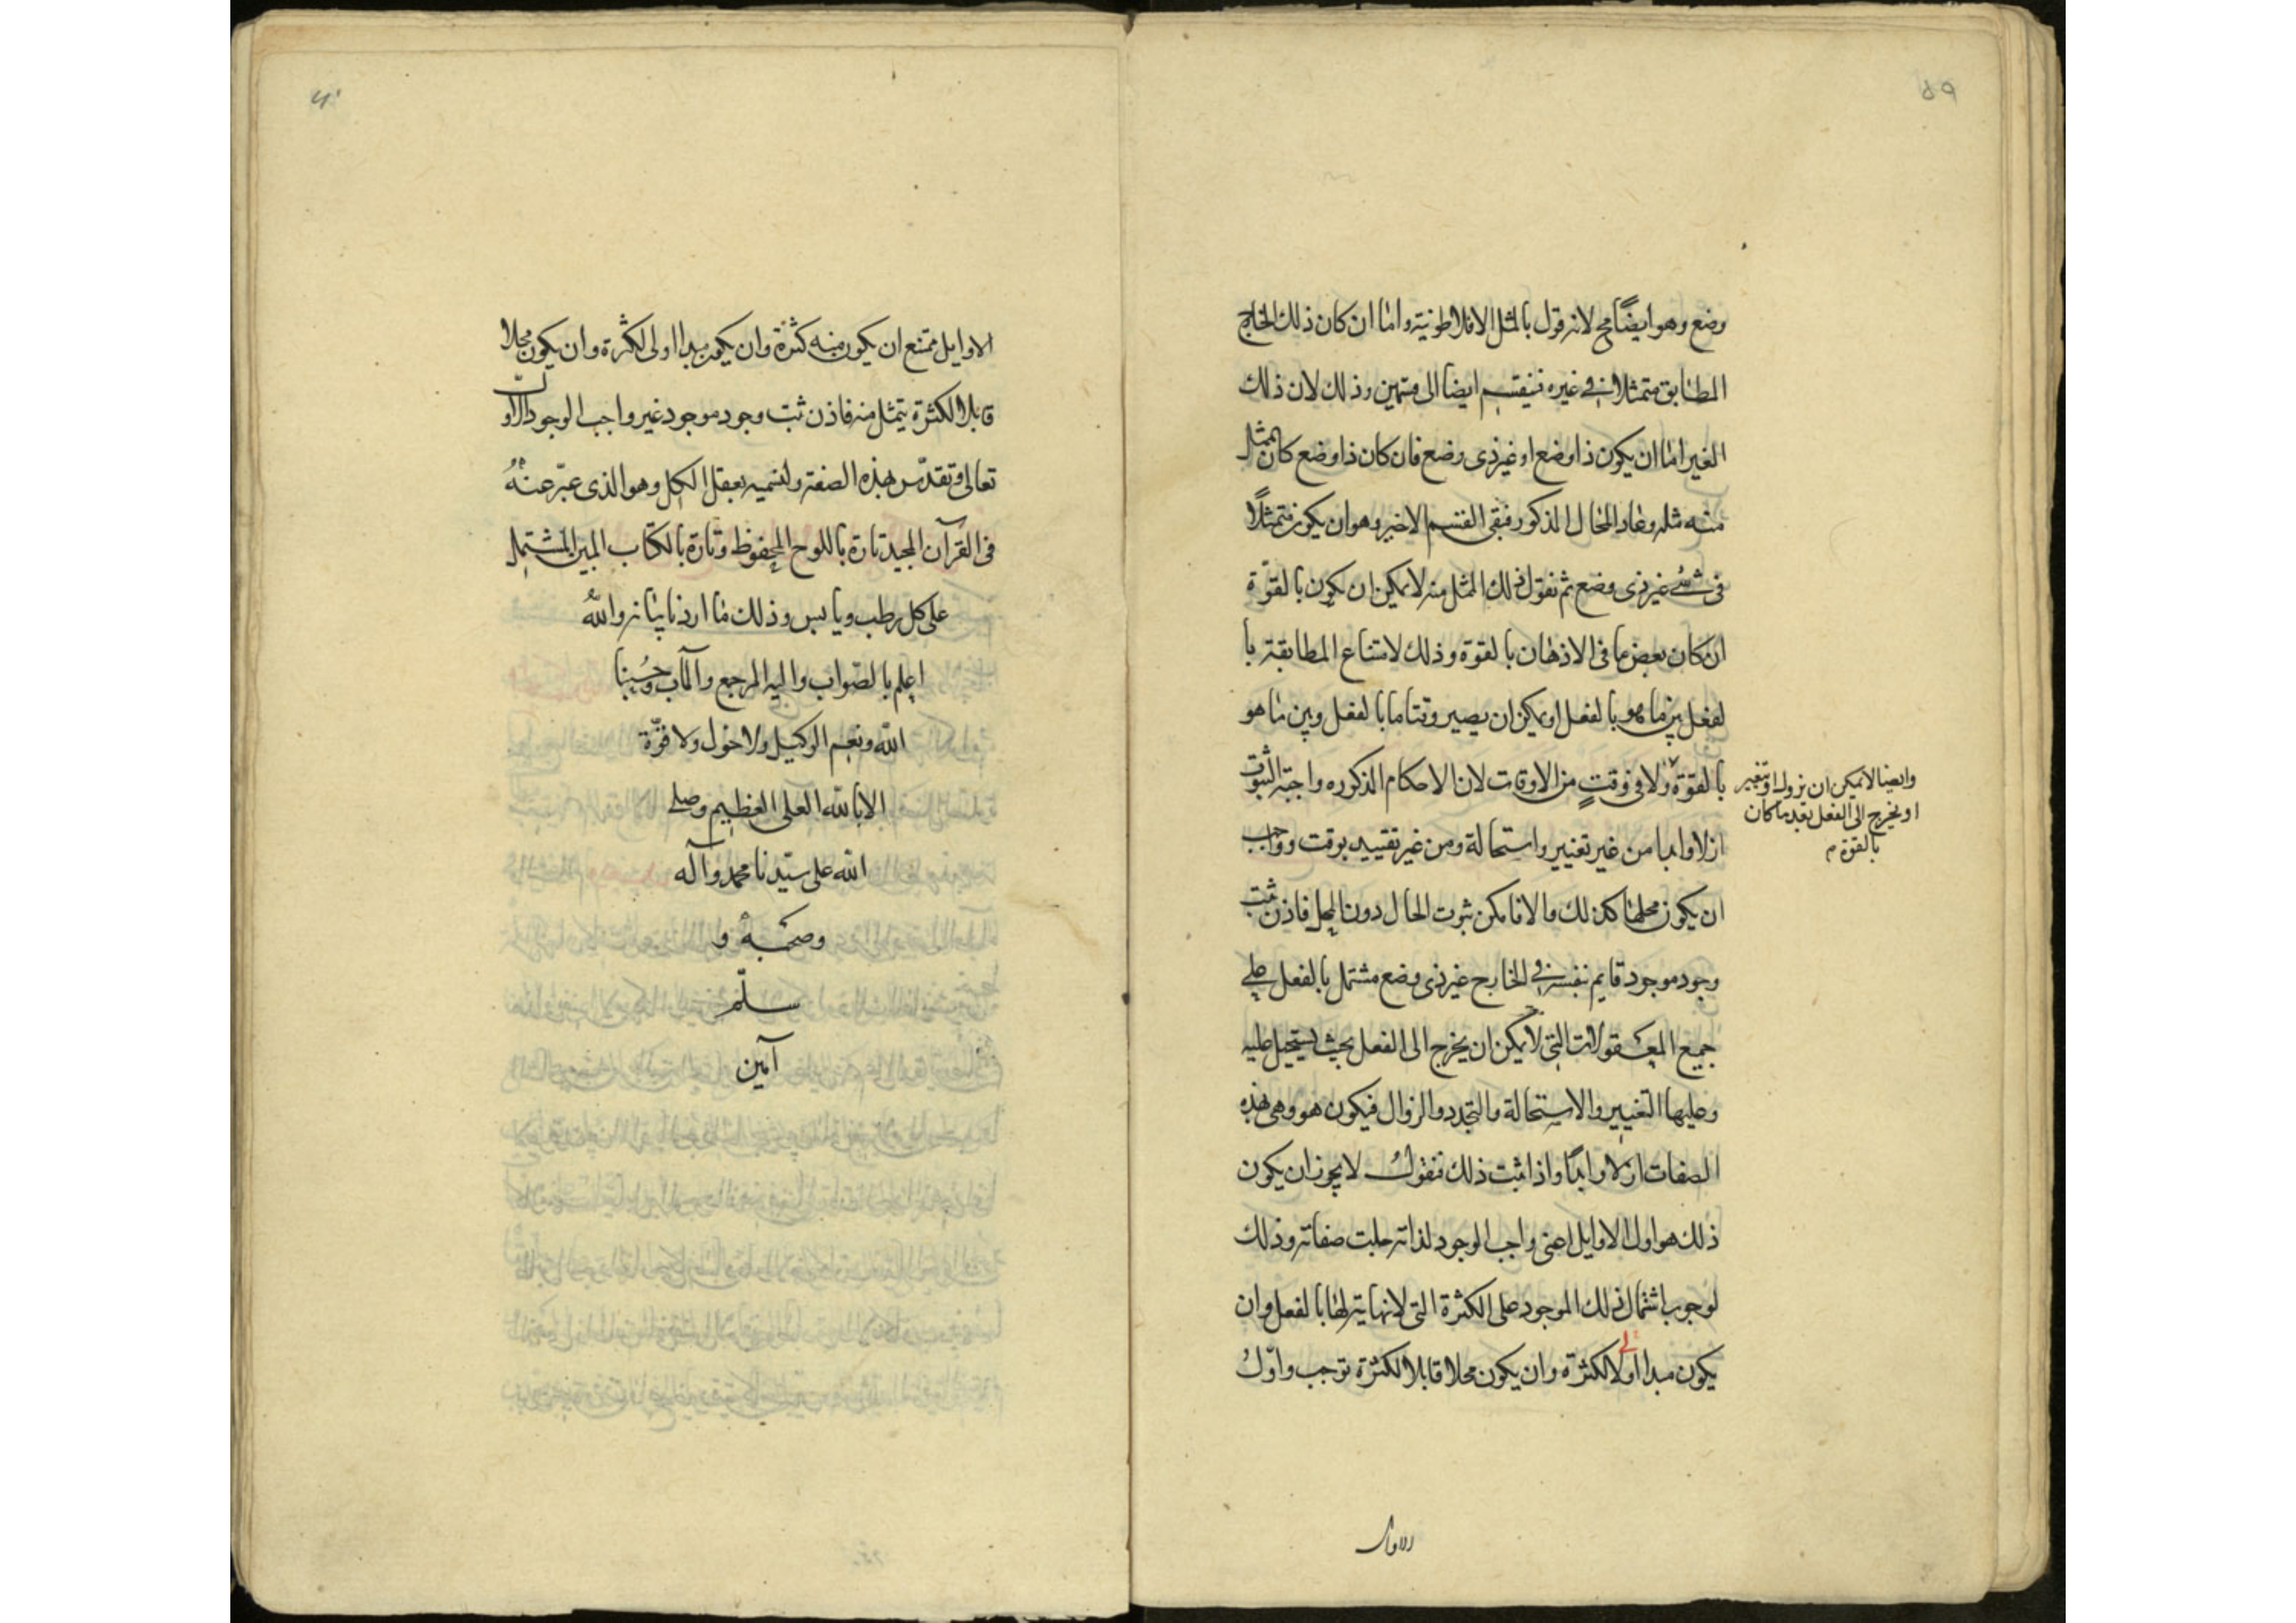 ٥٩
وضع وهو ايضًا مح لانه قول بالمثل الافلاطونية واما ان كان ذلك الخارج
المطابق متمثلا في غيره فينقسم ايضا الى قسمين وذلك لان ذلك
الغير اما ان يكون ذا وضع او غير ذى وضع فان كان ذا وضع كان المتمثل
منه مثله وعاد المحال المذكور فبقى القسم الاخير وهو ان يكون متمثلًا
فى شئ غير ذى وضع ثم نقول ذلك المتمثل منه لا يمكن ان يكون بالقوّة
ان كان بعض ما فى الاذهان بالقوة وذلك لامتناع المطابقة با
لفعل بين ما هو بالفعل او يمكن ان يصير وقتا ما بالفعل وبين ما هو
بالقوة ولا فى وقتٍ من الاوقات لان الاحكام المذكوره واجبة الثبوت
وايضا لا يمكن ان يزول او يتغير
او يخرج الى الفعل بعد ما كان
بالقوة م
ازلا وابدا من غير تغيير واستحالة ومن غير تقييد بوقت وواجب
ان يكون محلها كذلك والا فامكن ثبوت الحال دون المحل فاذن ثبت
وجود موجود قايم بنفسه فى الخارج غير ذى وضع مشتمل بالفعل على
جميع المعقولات التى لا يمكن ان يخرج الى الفعل بحيث يستحيل عليه
وعليها التغيير والاستحالة والتجدد والزوال فيكون هو وهى بهذه
الصفات ازلا وابدًا واذا ثبت ذلك فنقول لا يجوز ان يكون
ذلك هو اول الاوايل اعنى واجب الوجود لذاته جلت صفاته وذلك
لوجوب اشتمال ذلك الموجود على الكثرة التى لا نهاية لها بالفعل وان
يكون مبدا اولا لكثرة وان يكون محلا قابلا لكثرة توجب واوّل
الاوايل
الاوايل ممتنع ان يكون منه كثرة وان يكون مبدا اولى لكثرة وان يكون محلا
قابلا لكثرة يتمثل منه فاذن ثبت وجود موجود غير واجب الوجود الاول
تعالى وتقدّس بهذه الصفة ولنسميه بعقل الكل وهو الذى عبّر عنهُ
فى القرآن المجيد تارة باللوح المحفوظ وتارة بالكتاب المبين المشتمل
على كل رطب ويابس وذلك ما اردنا بيانه واللهُ
اعلم بالصّواب واليه المرجع والمآب وحَسْبُنا
الله ونعم الوكيل ولا حول ولا قوّة
الا بالله العلى العظيم وصلى
الله على سيّدنا محمد وآله
وصحبه و
سلّم
آمين